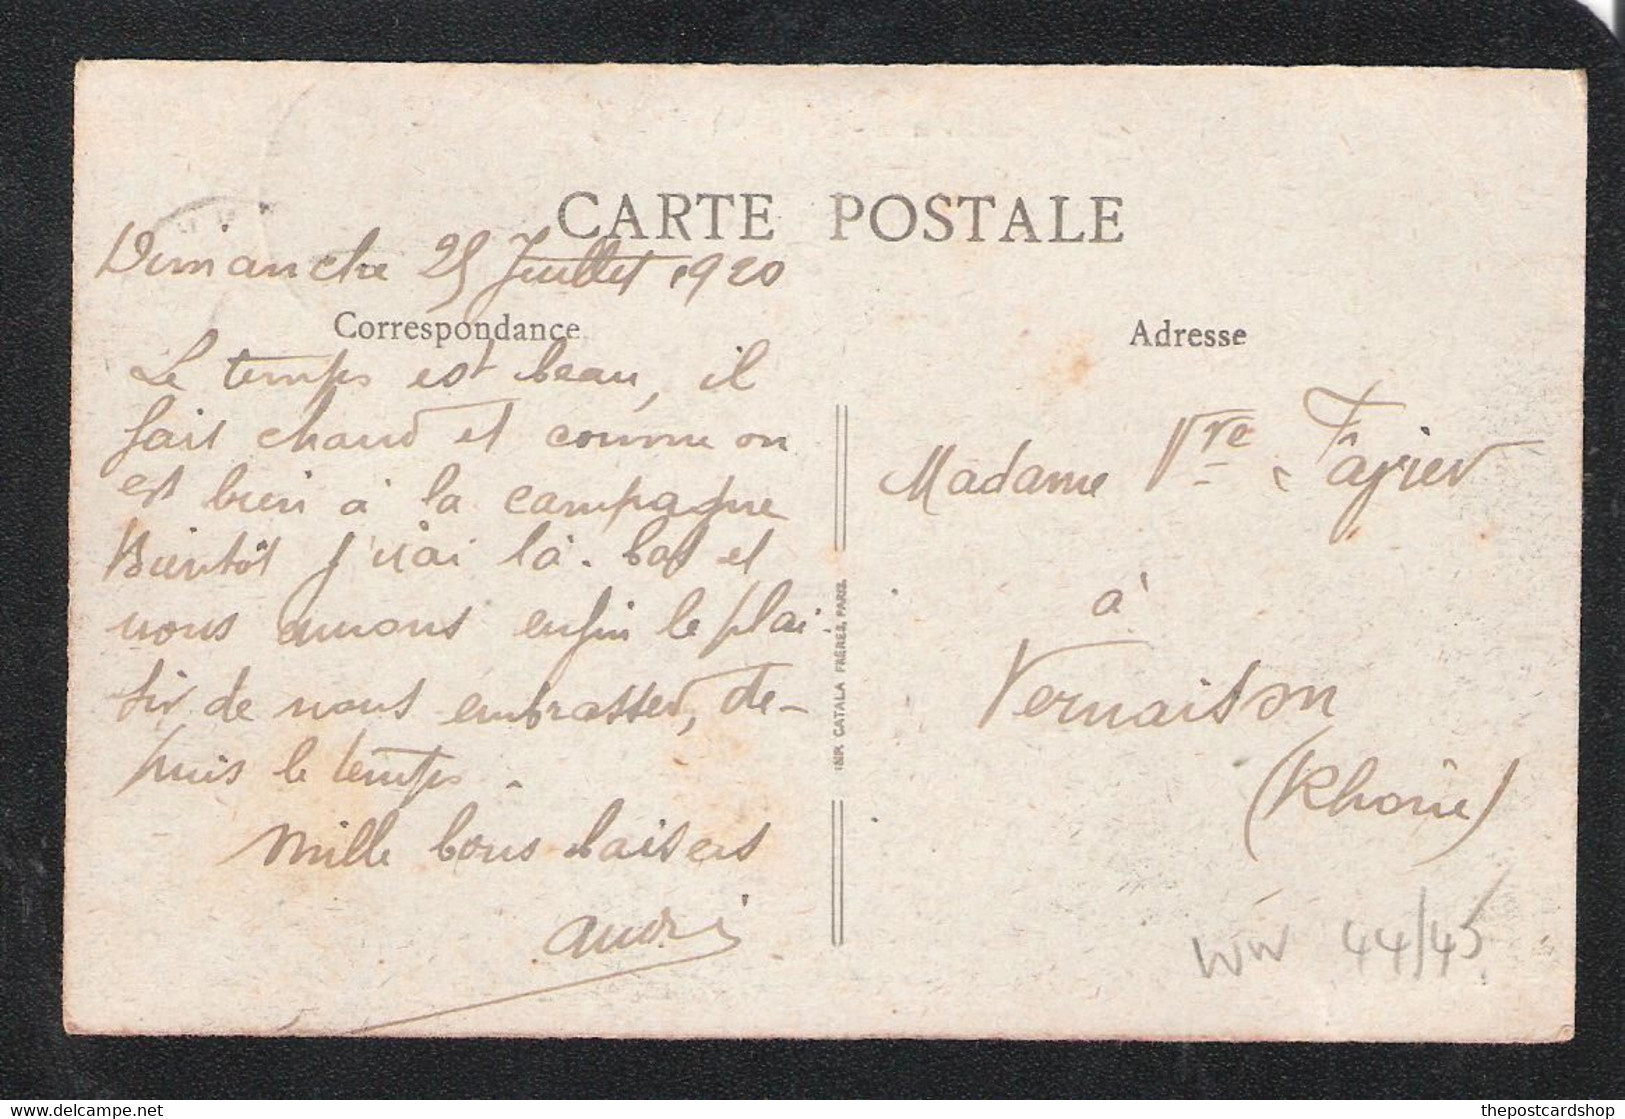 CARTE POSTALE
Dimanche 25 Juillet 1920
Correspondance
Le temps est beau, il
fait chaud et comme on
est bien à la campagne
Bientôt j'irai là-bas et
nous aurons enfin le plai-
sir de nous embrasser, de-
puis le temps.
Mille bons baisers
André
IMP. CATALA FRÈRES, PARIS
Adresse
Madame Vve
à
Vernaison
(Rhône)
WW 44/45
delcampe.net
thepostcardshop